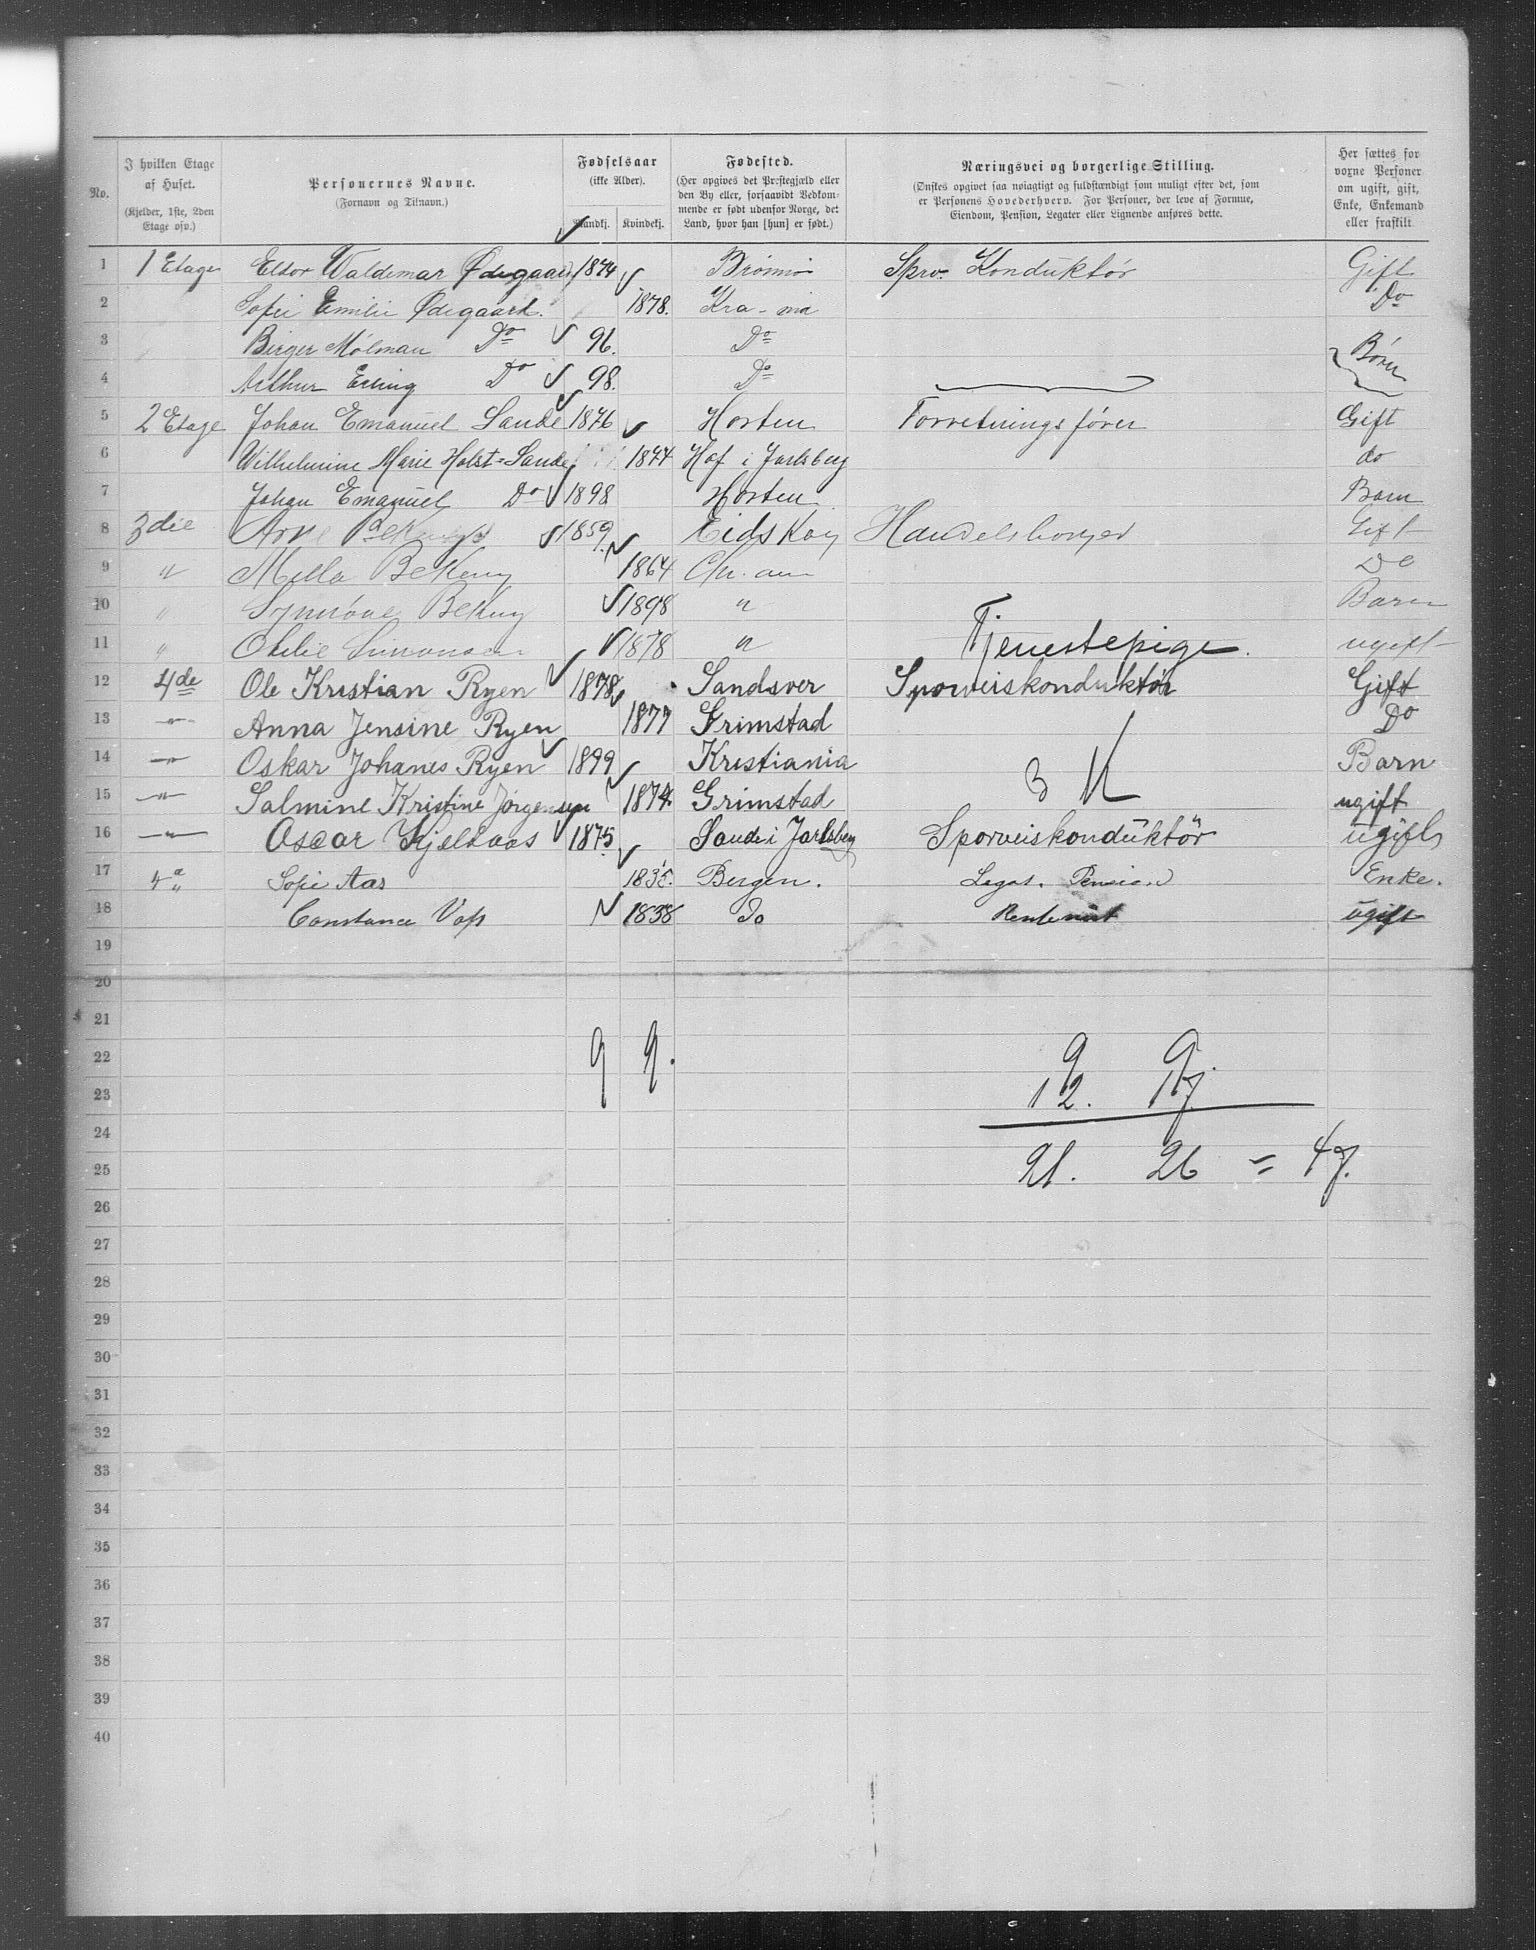 No. | I hvilken Etage af Huset. (Kjelder, 1ste, 2den Etage osv.) | Personernes Navne. (Fornavn og Tilnavn.) | Fødselsaar (ikke Alder). Mandkj. | Kvindekj. | Fødested. (Her opgives det Præstegjæld eller den By eller, forsaavidt Vedkommende er født udenfor Norge, det Land, hvor han [hun] er født.) | Næringsvei og borgerlige Stilling. (Ønskes opgivet saa nøiagtigt og fuldstændigt som muligt efter det, som er Personens Hovederhverv. For Personer, der leve af Formue, Eiendom, Pension, Legater eller Lignende anføres dette. | Her sættes for voxne Personer om ugift, gift, Enke, Enkemand eller fraskilt
1 1 Etage Eldor Waldemar Ødegaard 1874 Brønnø Sprv. Konduktör Gift
2 Sofie Emilie Ødegaard. 1878. Kra-nia Do
3 Birger Mólman Do 96. Do
4 Arthur Erling Do 98. Do Børn
5 2 Etage Johan Emanuel Sande 1876 Horten Forretningsfører Gift
6 Wilhelmine Marie Holst=Sande 1874 Hof i Jarlsberg do
7 Johan Emanuel Do 1898 Horten Barn
8 3die Arne 1859 Eidskog Handelsborger Gift
9 " Milla Bekeng 1864 Chr. ania Do
10 " Synnöve 1898 " Barn
11 " Othilie Simonsen 1878 " Tjenestepige. ugift
12 4de Ole Kristian Ryen 1878 Sandsver Sporveiskonduktør Gift
13 —"— Anna Jensine Ryen 1877 Grimstad Do
14 —"— Oskar Johanes Ryen 1899 Kristiania Barn
15 —"— Salmine Kristine Jørgensen 1874 Grimstad ugift
16 —"— Oscar Kjelsaas 1875 Sande i Jarlsberg Sporveiskonduktör ugift
17 4a " Sofie Aas 1835. Bergen. Legat. Pension Enke.
18 Constance Voss 1838 do Rentenist ugift
19
20
21
22 9 9. 9 9.
23 12. 17.
24
25 21. 26 = 47.
26
27
28
29
30
31
32
33
34
35
36
37
38
39
40